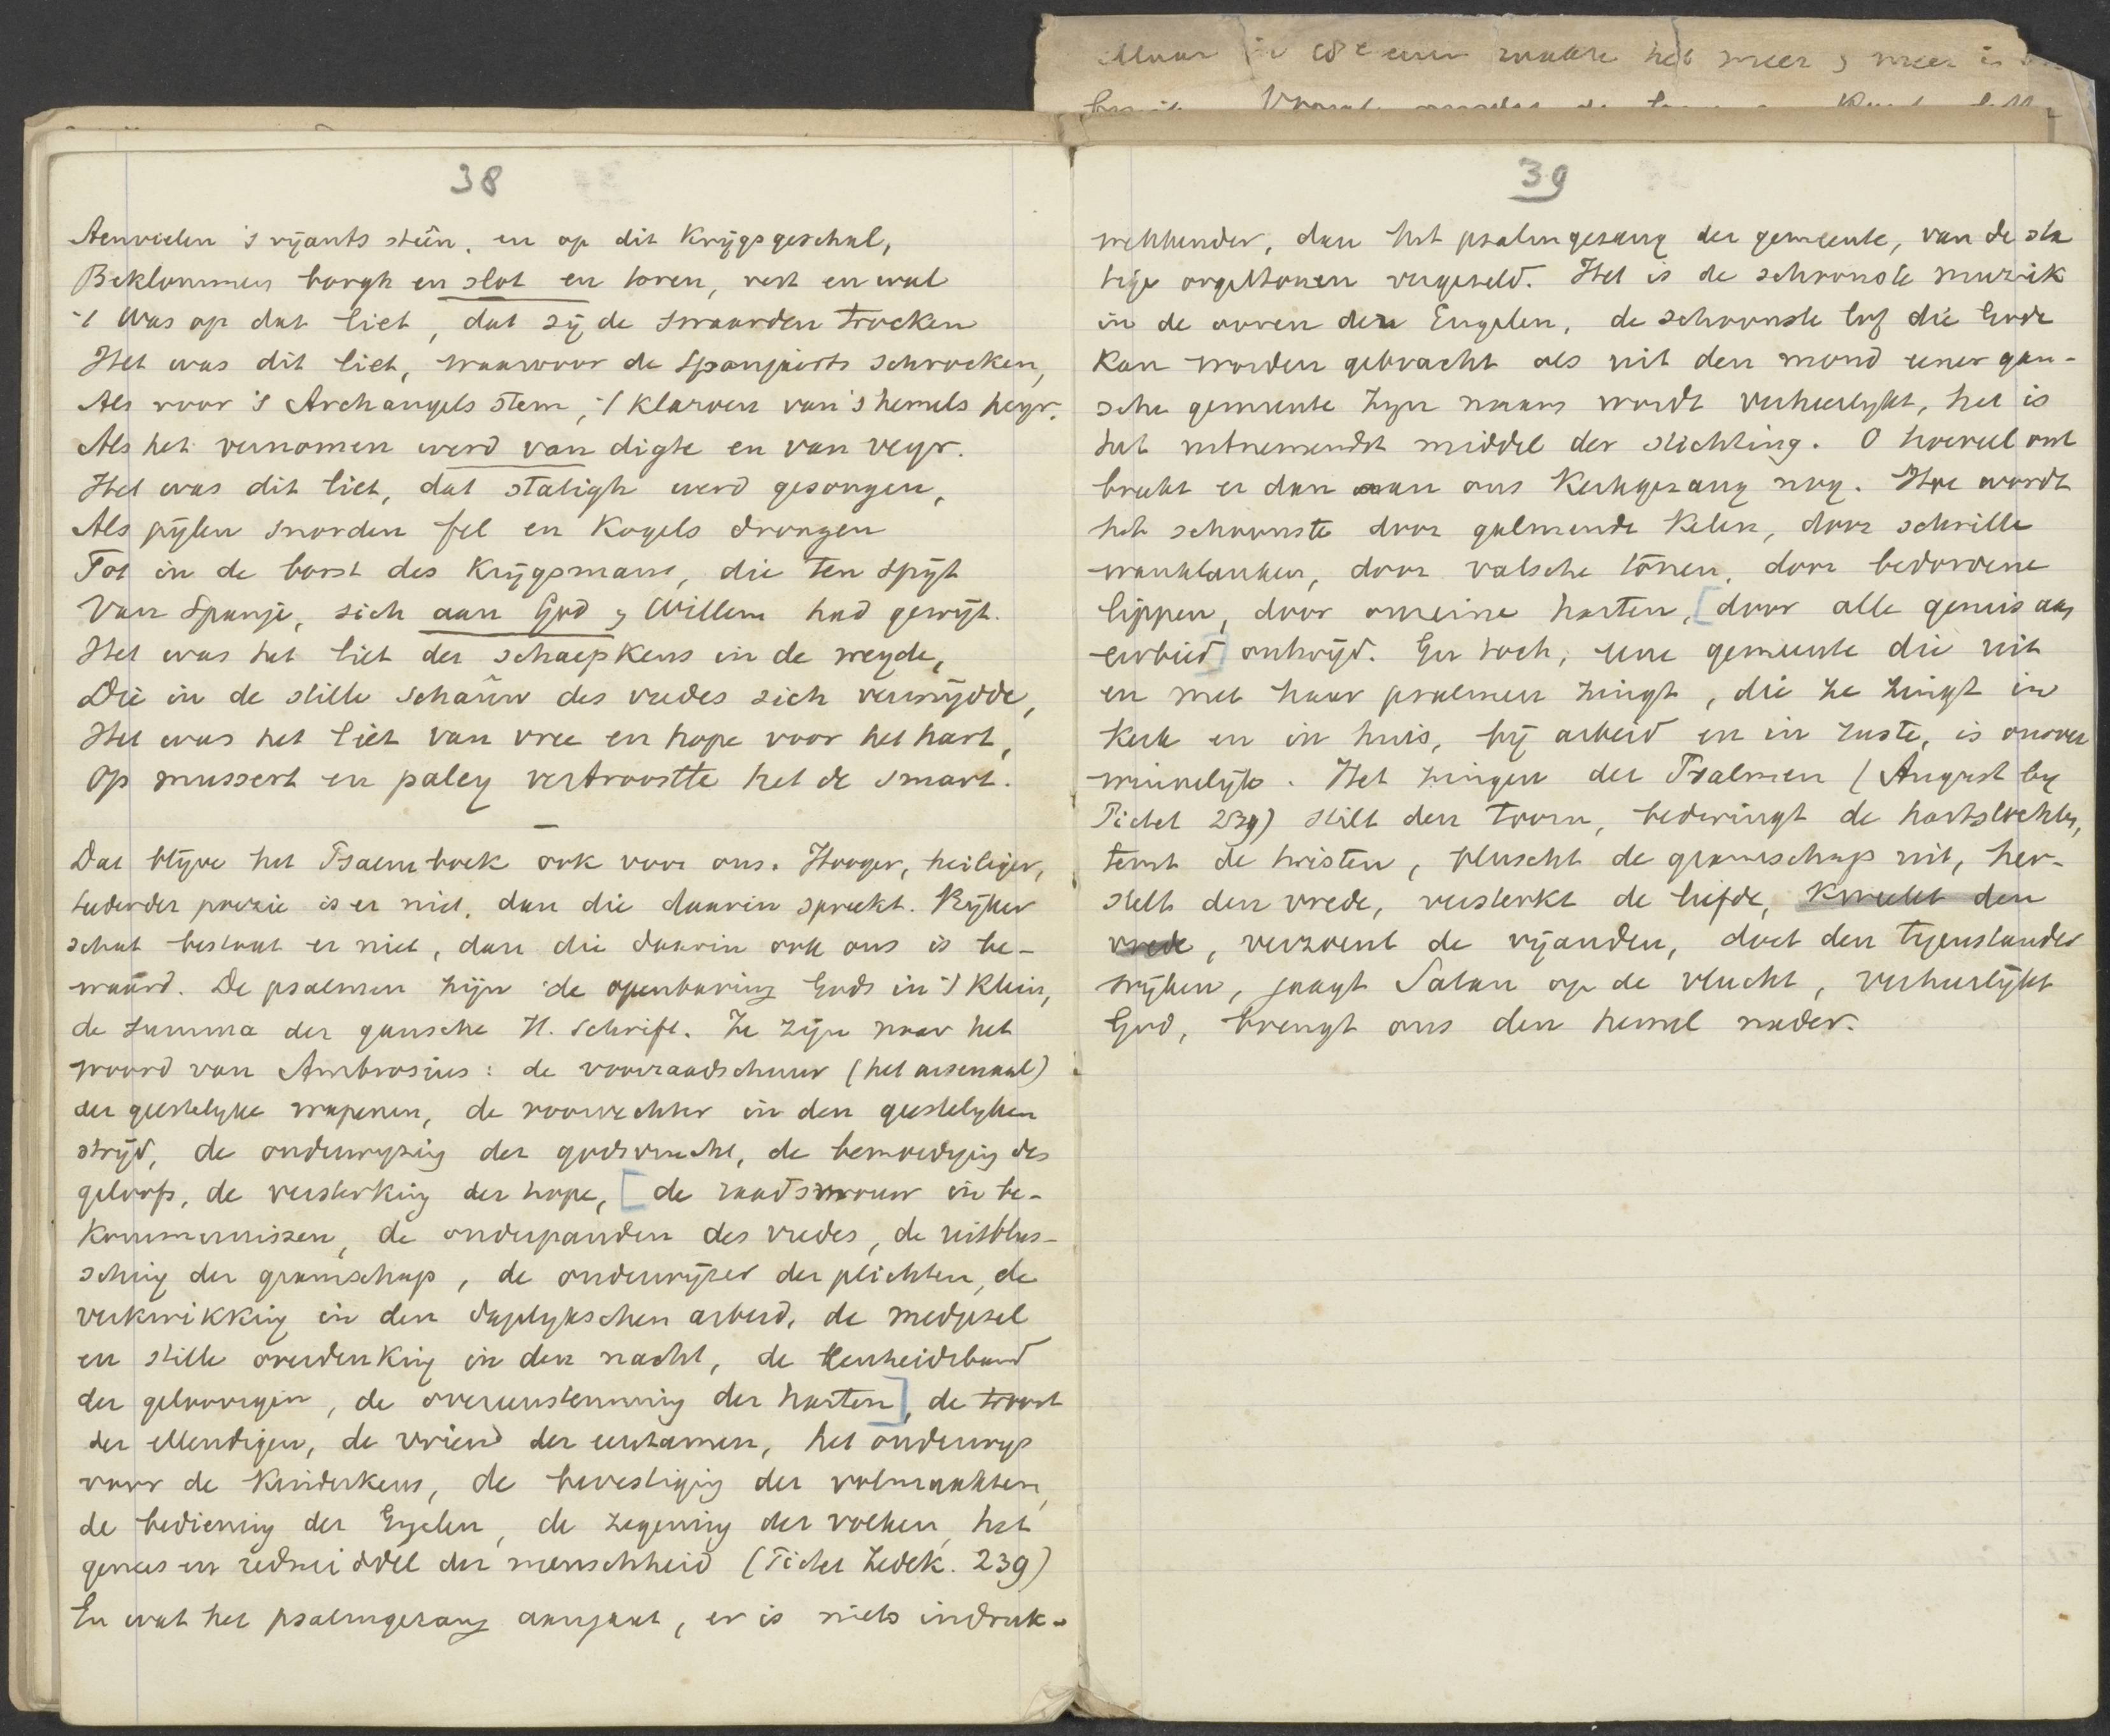 Maar in de eeuw raakte het meer & meer is
38
Aenvielen 's vijants steên, en op dit Krijgsgeschal,
Beklommen borgh en slot en toren, vest en wal
't Was op dat liet, dat zij de swaarden trocken
Het was dit liet, waarvoor de Spanjaerts schrocken,
Als voor 's Archangels stem, 't klaroen van 's hemels heyr.
Als het vernomen werd van digte en van veyr.
Het was dit liet, dat statigh werd gesongen,
Als pijlen snorden fel en Kogels drongen
Tot in de borst des Krijgsmans, die ten spijt
Van Spanje, sich aan God & Willem had gewijt.
Het was het liet der schaepkens in de weyde,
Die in de stille schaûw des vredes sich vermijdde,
Het was het liet van vree en hope voor het hart,
Op mussert en paley vertroostte het de smart.
Dat blijve het Psalmboek ook voor ons. Hooger, heiliger,
teederder poezie is er niet, dan die daarin spreekt. Rijker
schat bestaat er niet, dan die daarin ook ons is be-
waard. De psalmen zijn de openbaring Gods in 't klein,
de summa der gansche H. Schrift. Ze zijn naar het
woord van Ambrosius: de voorraadschuur (het arsenaal)
der geestelijke wapenen, de voorvechter in den geestelijken
strijd, de onderwijzing der godsvrucht, de bemoediging des
geloofs, de versterking der hope, [de raadsvrouw in be-
kommernissen, de onderpanden des vredes, de uitblus-
sching der gramschap, de onderwijzer der plichten, de
verkwikking in den dagelijkschen arbeid, de medgezel
en stille overdenking in den nacht, de Eenheidsband
der geloovigen, de overeenstemming der harten], de troost
der ellendigen, de vriend der eenzamen, het onderwijs
voor de Kinderkens, de bevestiging der volmaakten,
de bediening der Engelen, de zegening der volken, het
genees en redmiddel der menschheid (Pictet Zedek. 239)
En wat het psalmgezang aangaat, er is niets indruk-
39
wekkender, dan het psalmgezang der gemeente, van de sta
tige orgeltonen vergezeld. Het is de schoonste muziek
in de ooren der Engelen, de schoonste lof die Gode
kan worden gebracht als uit den mond eener gan-
sche gemeente Zijn naam wordt verheerlijkt, het is
het uitnemendst middel der stichting. O hoeveel ont
breekt er dan aan ons Kerkgezang nog. Hoe wordt
het schoonste door galmende kelen, door schrille
wanklanken, door valsche tonen, door bedorvene
lippen, door onreine harten, [door alle gemis aan
eerbied] ontwijd. En toch, eene gemeente die uit
en met haar psalmen zingt, die ze zingt in
Kerk en in huis, bij arbeid en in ruste, is onover
winnelijk. Het zingen der Psalmen (August by
Pictet 239) stilt den toorn, bedwingt de hartstochten,
temt de twisten, bluscht de gramschap uit, her-
stelt den vrede, versterkt de liefde, kweekt den
vrede, verzoent de vijanden, doet den tegenstander
wijken, jaagt Satan op de vlucht, verheerlijkt
God, brengt ons den hemel nader.